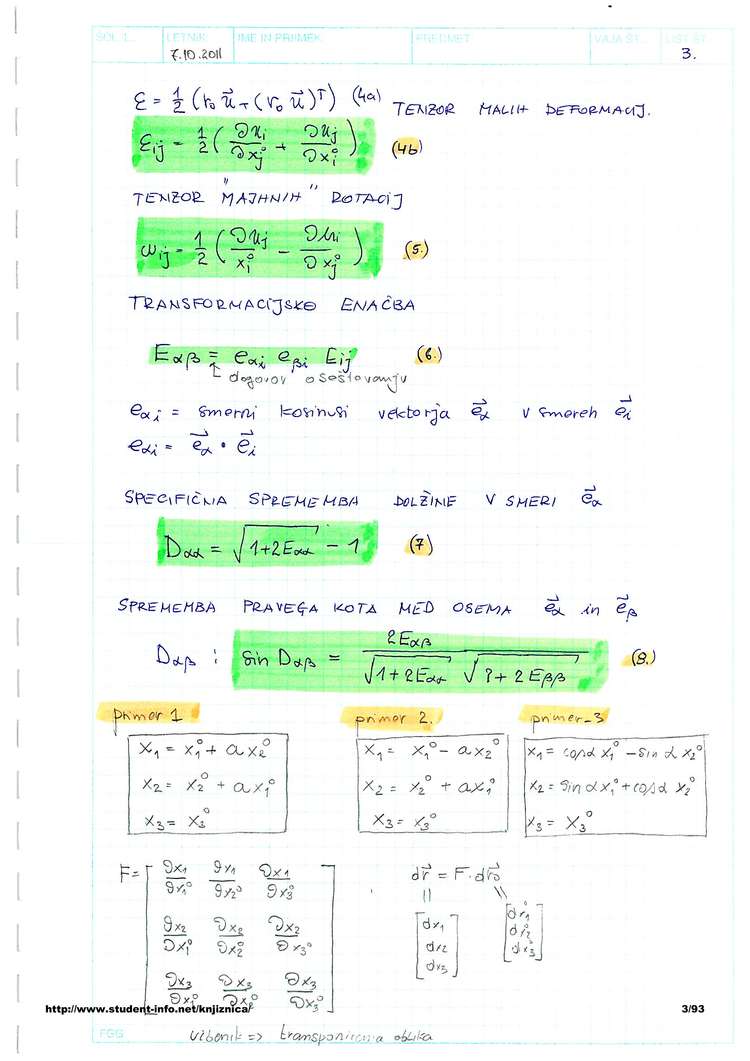 ŠOL. L... LETNIK IME IN PRIIMEK PREDMET VAJA ŠT. LIST ŠT.
7.10.2011 3.
ε = 1/2 (∇₀ u⃗ + (∇₀ u⃗)ᵀ) (4a) TENZOR MALIH DEFORMACIJ.
εij = 1/2 (∂ui/∂xj° + ∂uj/∂xi°) (4b)
TENZOR "MAJHNIH" ROTACIJ
ωij = 1/2 (∂uj/xi° − ∂ui/∂xj°) (5.)
TRANSFORMACIJSKO ENAČBA
Eαβ = eαi eβi Eij (6.)
dogovor o seštevanju
eαi = smerni kosinusi vektorja e⃗α v smereh e⃗i
eαi = e⃗α · e⃗i
SPECIFIČNA SPREMEMBA DOLŽINE V SMERI e⃗α
Dαα = √(1+2Eαα) − 1 (7)
SPREMEMBA PRAVEGA KOTA MED OSEMA e⃗α in e⃗β
Dαβ : sin Dαβ = 2Eαβ / √(1+2Eαα) √(?+2Eββ) (8.)
primer 1 primer 2. primer 3
x1 = x1° + a x2° x1 = x1° − a x2° x1 = cosα x1° − sin α x2°
x2 = x2° + a x1° x2 = x2° + a x1° x2 = sin α x1° + cosα x2°
x3 = x3° x3 = x3° x3 = x3°
F = [ ∂x1/∂x1° ∂x1/∂x2° ∂x1/∂x3° dr⃗ = F · dr⃗₀
∂x2/∂x1° ∂x2/∂x2° ∂x2/∂x3° [dx1 dx2 dx3] [dx1° dx2° dx3°]
∂x3/∂x1° ∂x3/∂x2° ∂x3/∂x3° ]
http://www.student-info.net/knjiznica/ 3/93
FGG učbenik => transponirana oblika